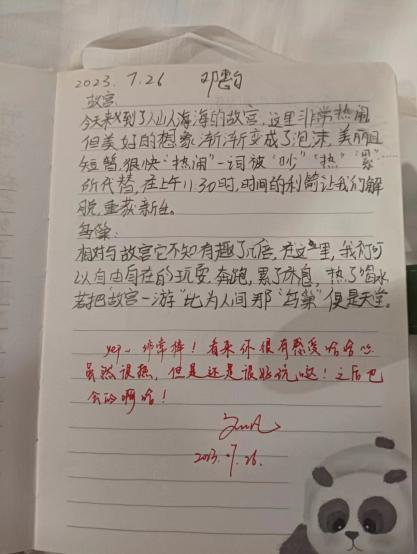 2023. 7.26 邓
故宫:
今天来到了人山人海的故宫,这里非常热闹
但美好的想象渐渐变成了泡沫,美丽且
短暂,很快"热闹"一词被"吵""热""累"
所代替,在上午11:30时,时间的利箭让我们解
脱,重获新生。
鸟巢:
相对与故宫它不知有趣了几倍,在这里,我们可
以自由自在的玩耍、奔跑,累了休息,热了喝水
若把"故宫一游"比为人间那"鸟巢"便是天堂。
yep~ 非常棒!看来你很有感受哈哈
虽然很热,但是还是很好玩哒!之后也
会的啊哈!
2023.7.26.